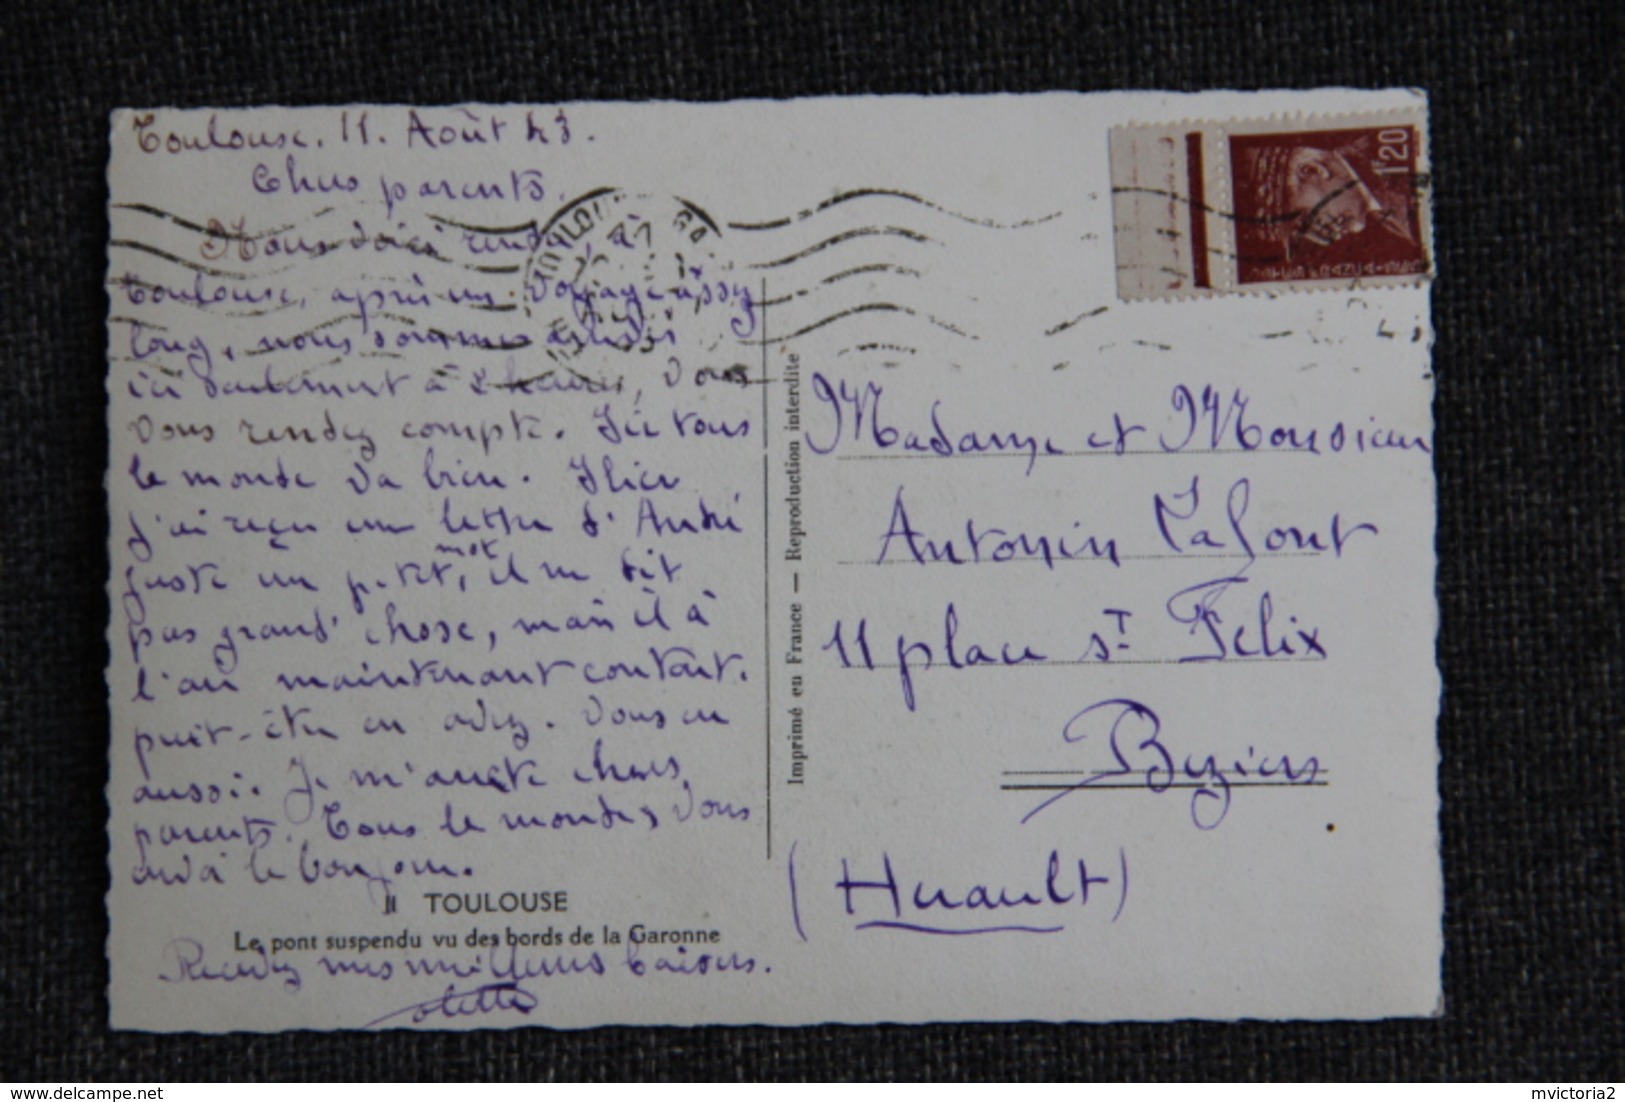 Toulouse. 11. Août 43.
Chers parents.
Nous voici rendu, à
toulouse, après un voyage assez
long, nous sommes arrivés
ici seulement à 2 heures, vous
vous rendez compte. Ici tous
le monde va bien. Hier
j'ai reçu une lettre d'André
juste un petit, mot il me dit
pas grand' chose, mais il à
l'air maintenant content.
peut-être en avez. vous eu
aussi. Je m'arrête chers
parents. Tous le monde vous
le bonjour.
11 TOULOUSE
Le pont suspendu vu des bords de la Garonne
Recevez mes meilleurs baisers.
Imprimé en France — Reproduction interdite
1F20
Madame et Monsieur
Antonin Lafont
11 place St Félix
Beziers
(Herault)
mvictoria2